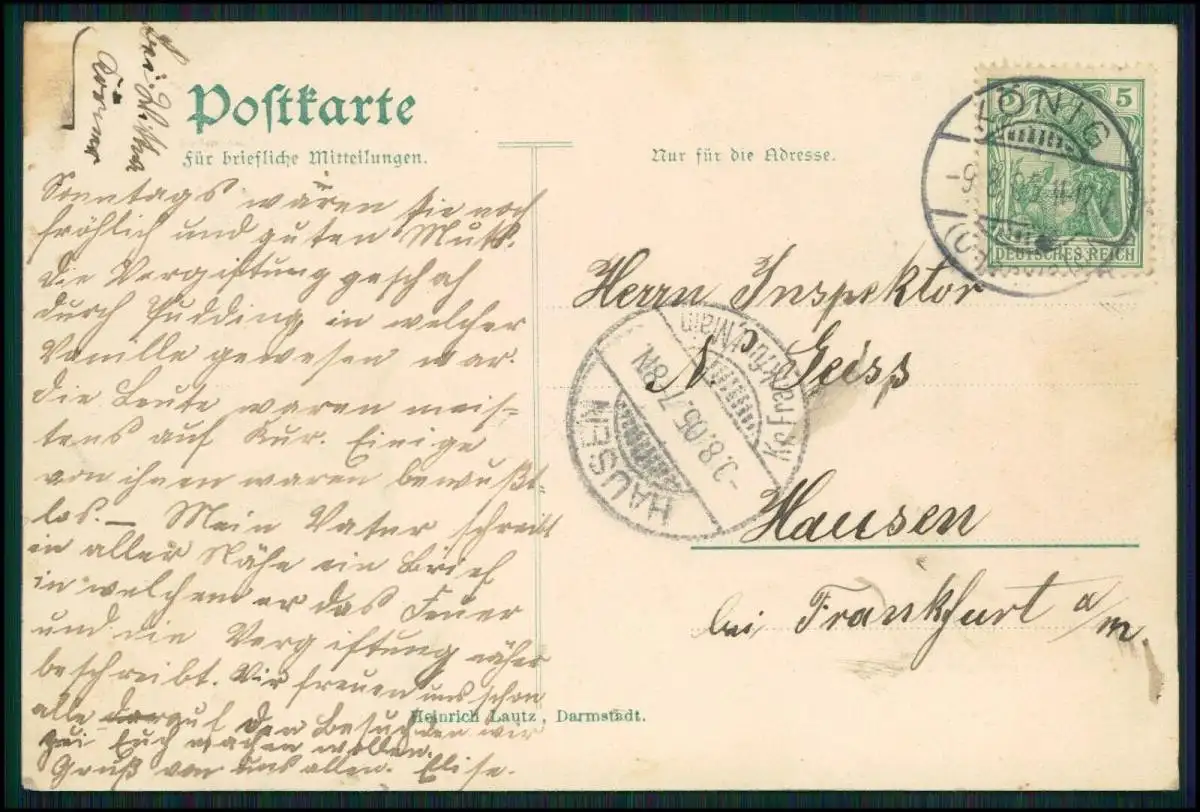 Bei: Wittwe
Körner
Postkarte
Für briefliche Mitteilungen.
Nur für die Adresse.
Sonntags wären sie noch
fröhlich und guten Muts.
Die Vergiftung geschah
durch Pudding, in welcher
Vanille gewesen war.
Die Leute waren meis-
tens auf Kur. Einige
von ihnen waren bewußt-
los. — Mein Vater schreibt
in aller Nähe ein Brief
in welchem er das Feuer
und die Vergiftung näher
beschreibt. Wir freuen uns schon
alle auf den Besuch den wir
bei Euch machen wollen.
Gruß von uns allen. Elise.
KÖNIG
5
DEUTSCHES REICH
Herrn Inspektor
N. Geiss
Hausen
bei Frankfurt a/m.
HAUSEN
-9.8.05.7-8N.
Kr. Frankfurt, Main
Heinrich Lautz, Darmstadt.